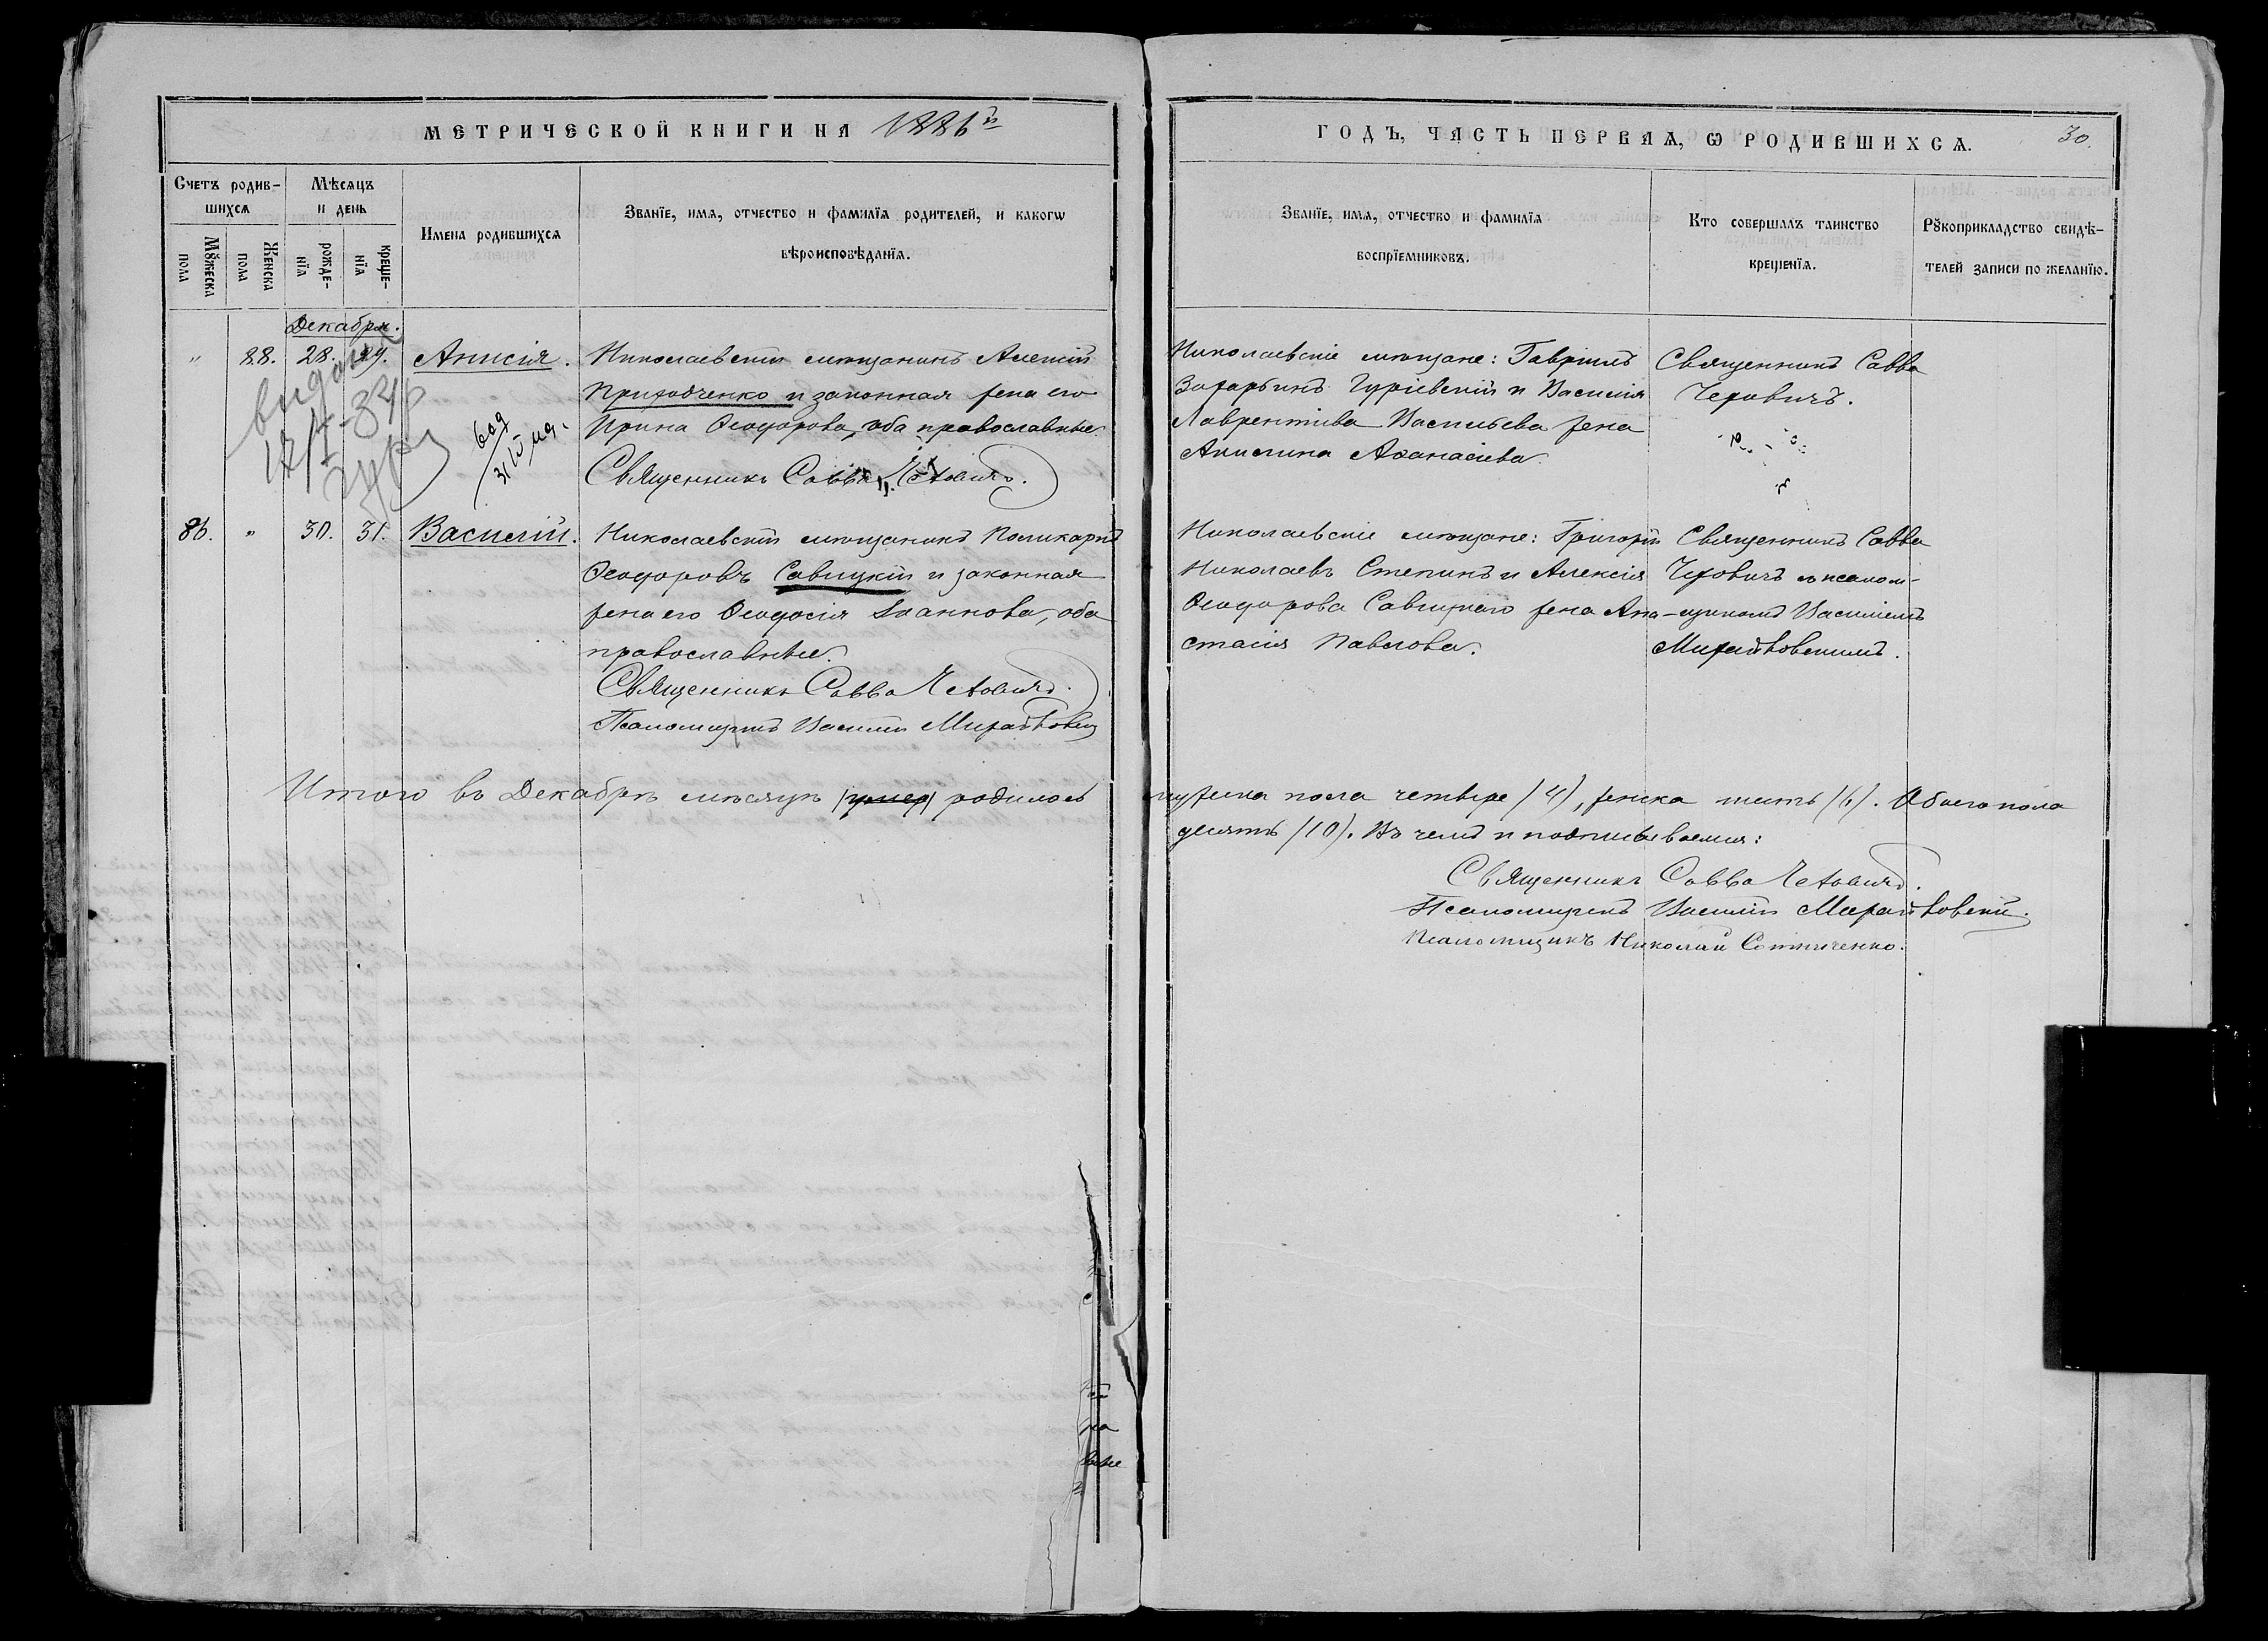 МЕТРИЧЕСКОЙ КНИГИ НА 1886й
ГОДЪ, ЧАСТЬ ПЕРВАЯ, Ѡ РОДИВШИХСѦ.
30.
Счетъ родив-
шихсѧ
Мѣсѧцъ
и день
Мꙋжеска
пола
Женска
пола
рожде-
нїѧ
креще-
нїѧ
Имена родившихсѧ
Званїе, имѧ, отчество и фамилїѧ родителей, и какогѡ
вѣроисповѣданїѧ.
Званїе, имѧ, отчество и фамилїѧ
воспрїемниковъ.
Кто совершалъ таинство
крещенїѧ.
Рꙋкоприкладство свидѣ-
телей записи по желанїю.
Декабря.
" 88. 28. 29. Анисія. Николаевскій мѣщанинъ Алексій
Приходченко и законная жена его
Ирина Ѳеодорова, оба православные.
Священникъ Савва Чехович.
Николаевскіе мѣщане: Гавріилъ
Захарьинъ Гуріевскій и Василія
Лаврентіева Васильева жена
Акилина Аѳанасіева.
Священникъ Савва
Чеховичъ.
86. " 30. 31. Василій. Николаевскій мѣщанинъ Поликарпъ
Ѳеодоровъ Савицкій и законная
жена его Ѳеодосія Іоаннова, оба
православные.
Священникъ Савва Чехович.
Псаломщикъ Василій
Николаевскіе мѣщане: Григорій
Николаевъ Степинъ и Алексія
Ѳеодорова Савицкаго жена Ана-
стасія Павлова.
Священникъ Савва
Чеховичъ съ псалом-
щикомъ Василіемъ
Итого въ Декабрѣ мѣсяцѣ родилось
мужеска пола четыре /4/, женска шесть /6/. Обоего пола
десять /10/. Въ чемъ и подписываемся:
Священникъ Савва Чехович.
Псаломщикъ Василій
Псаломщикъ Николай Сотниченко.